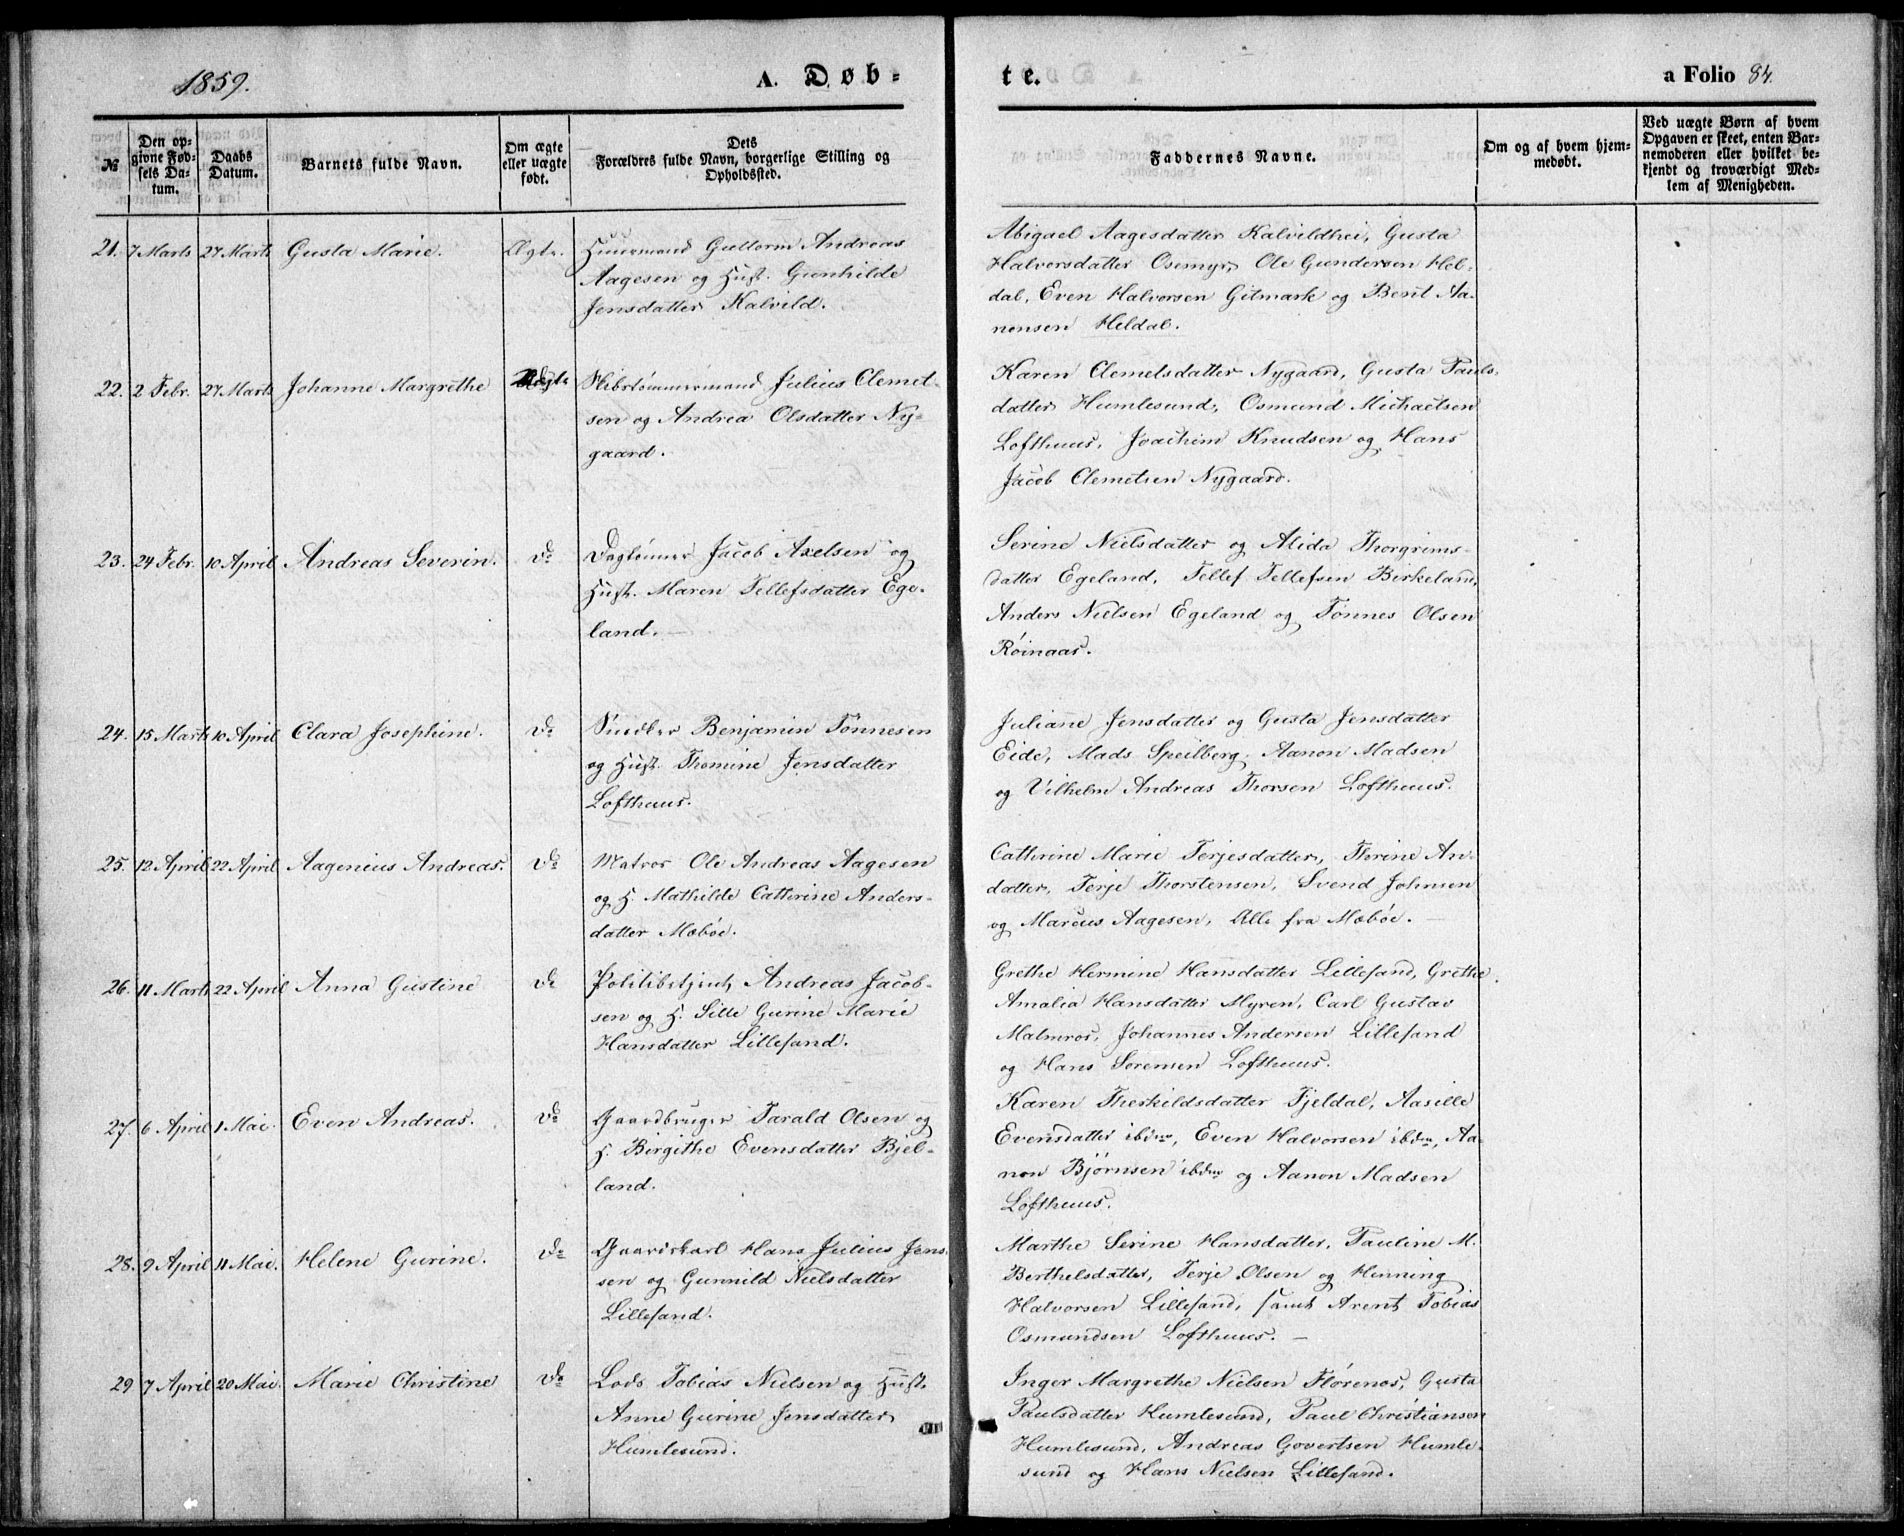 1859.
A. Døb-
te.
a Folio 84.
№
Den op-
givne Fød-
sels Da-
tum.
Daabs
Datum.
Barnets fulde Navn.
Om ægte
eller uægte
født.
Dets
Forældres fulde Navn, borgerlige Stilling og
Opholdsted.
Faddernes Navne.
Om og af hvem hjem-
medøbt.
Ved uægte Børn af hvem
Opgaven er skeet, enten Bar-
nemoderen eller hvilket be-
kjendt og troværdigt Med-
lem af Menigheden.
21. 7 Marts 27 Marts Gusta Marie. Ægte.
Huusmand Guttorm Andreas
Aagesen og Hust. Gunhilde
Jensdatter Kalvild.
Abigael Aagesdatter Kalvildhei, Gusta
Halvorsdatter Osemyr, Ole Gundersen Hel-
dal, Even Halvorsen Gitmark og Berit Aa-
nonsen Heldal.
22. 2 Febr. 27 Marts Johanne Margrethe
Skibstømmermand Julius Clemet-
sen og Andrea Olsdatter Ny-
gaard.
Karen Clemetsdatter Nygaard, Gusta Pauls-
datter Humlesund, Osmund Michaelsen
Lofthuus, Joachim Knudsen og Hans
Jacob Clemetsen Nygaard.
23. 24 Febr. 10 April Andreas Severin. Do
Daglønner Jacob Axelsen og
Hust. Maren Tellefsdatter Ege-
land.
Serine Nielsdatter og Alida Thorgrims-
datter Egeland, Tellef Tellefsen Birkeland,
Anders Nielsen Egeland og Tønnes Olsen
Røinaas.
24. 15 Marts 10 April Clara Josephine. Do
Snedker Benjamin Tønnesen
og Hust. Thomine Jensdatter
Lofthuus.
Juliane Jensdatter og Gusta Jensdatter
Eide, Mads Speilberg, Aanon Madsen
og Vilhelm Andreas Thorsen Lofthuus.
25. 12 April 22 April Aagenius Andreas. Do
Matros Ole Andreas Aagesen
og H. Mathilde Cathrine Anders-
datter Møbøe.
Cathrine Marie Terjesdatter, Thrine An-
datter, Terje Thorstensen, Svend Johnsen
og Marcus Aagesen, Alle fra Møbøe.
26. 11 Marts 22 April Anna Gustine Do
Politibetjent Andreas Jacob-
sen og H. Sille Gurine Marie
Hansdatter Lillesand.
Grethe Hermine Hansdatter Lillesand, Grethe
Amalia Hansdatter Myren, Carl Gustav
Malmros, Johannes Andersen Lillesand
og Hans Sørensen Lofthuus.
27. 6 April 1 Mai. Even Andreas. Do
Gaardbruger Tarald Olsen og
H. Birgithe Evensdatter Bjel-
land.
Karen Therkildsdatter Fjeldal, Aasille
Evensdatter ibdm, Even Halvorsen ibdm, Aa-
non Bjørnsen ibdm og Aanon Madsen
Lofthuus.
28. 9 April 11 Mai. Helene Gurine. Do
Gaardskarl Hans Julius Jens-
sen og Gunnild Nielsdatter
Lillesand.
Marthe Serine Hansdatter, Pauline M.
Berthelsdatter, Terje Olsen og Henning
Halvorsen Lillesand, samt Arent Tobias
Osmundsen Lofthuus.
29 7 April 20 Mai. Marie Christine Do
Lods Tobias Nielsen og Hust.
Anne Gurine Jensdatter
Humlesund.
Inger Margrethe Nielsen Flørenes, Gusta
Paulsdatter Humlesund, Paul Christiansen
Humlesund, Andreas Govertsen Humle-
sund og Hans Nielsen Lillesand.